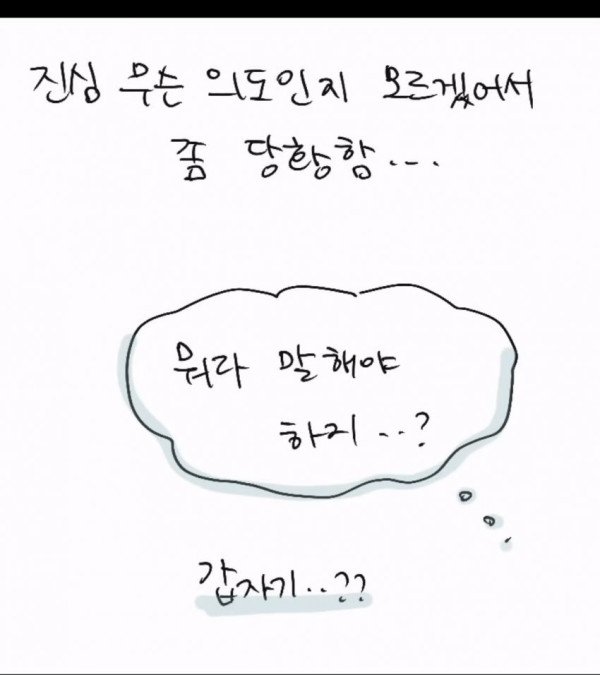 진심 무슨 의도인지 모르겠어서
좀 당황함...
뭐라 말해야
하지..?
갑자기..??